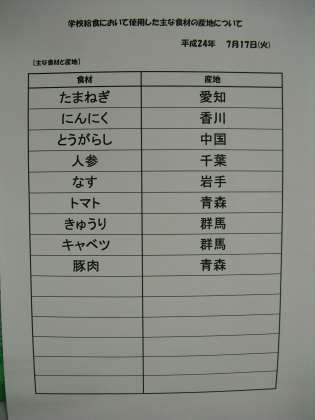 学校給食において使用した主な食材の産地について
平成24年 7月17日(火)
(主な食材と産地)
食材 産地
たまねぎ 愛知
にんにく 香川
とうがらし 中国
人参 千葉
なす 岩手
トマト 青森
きゅうり 群馬
キャベツ 群馬
豚肉 青森